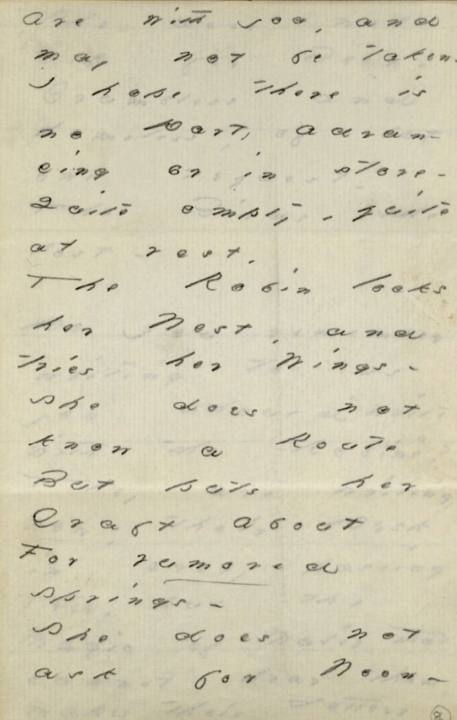 are with you, and
may not be taken.
I hope there is
no Dart, advan-
cing or in store -
Quite empty, quite
at rest,
The Robin locks
her Nest, and
tries her Wings -
She does not
know a Route
But puts her
Craft about
For rumored
Springs -
She does not
ask for Noon -